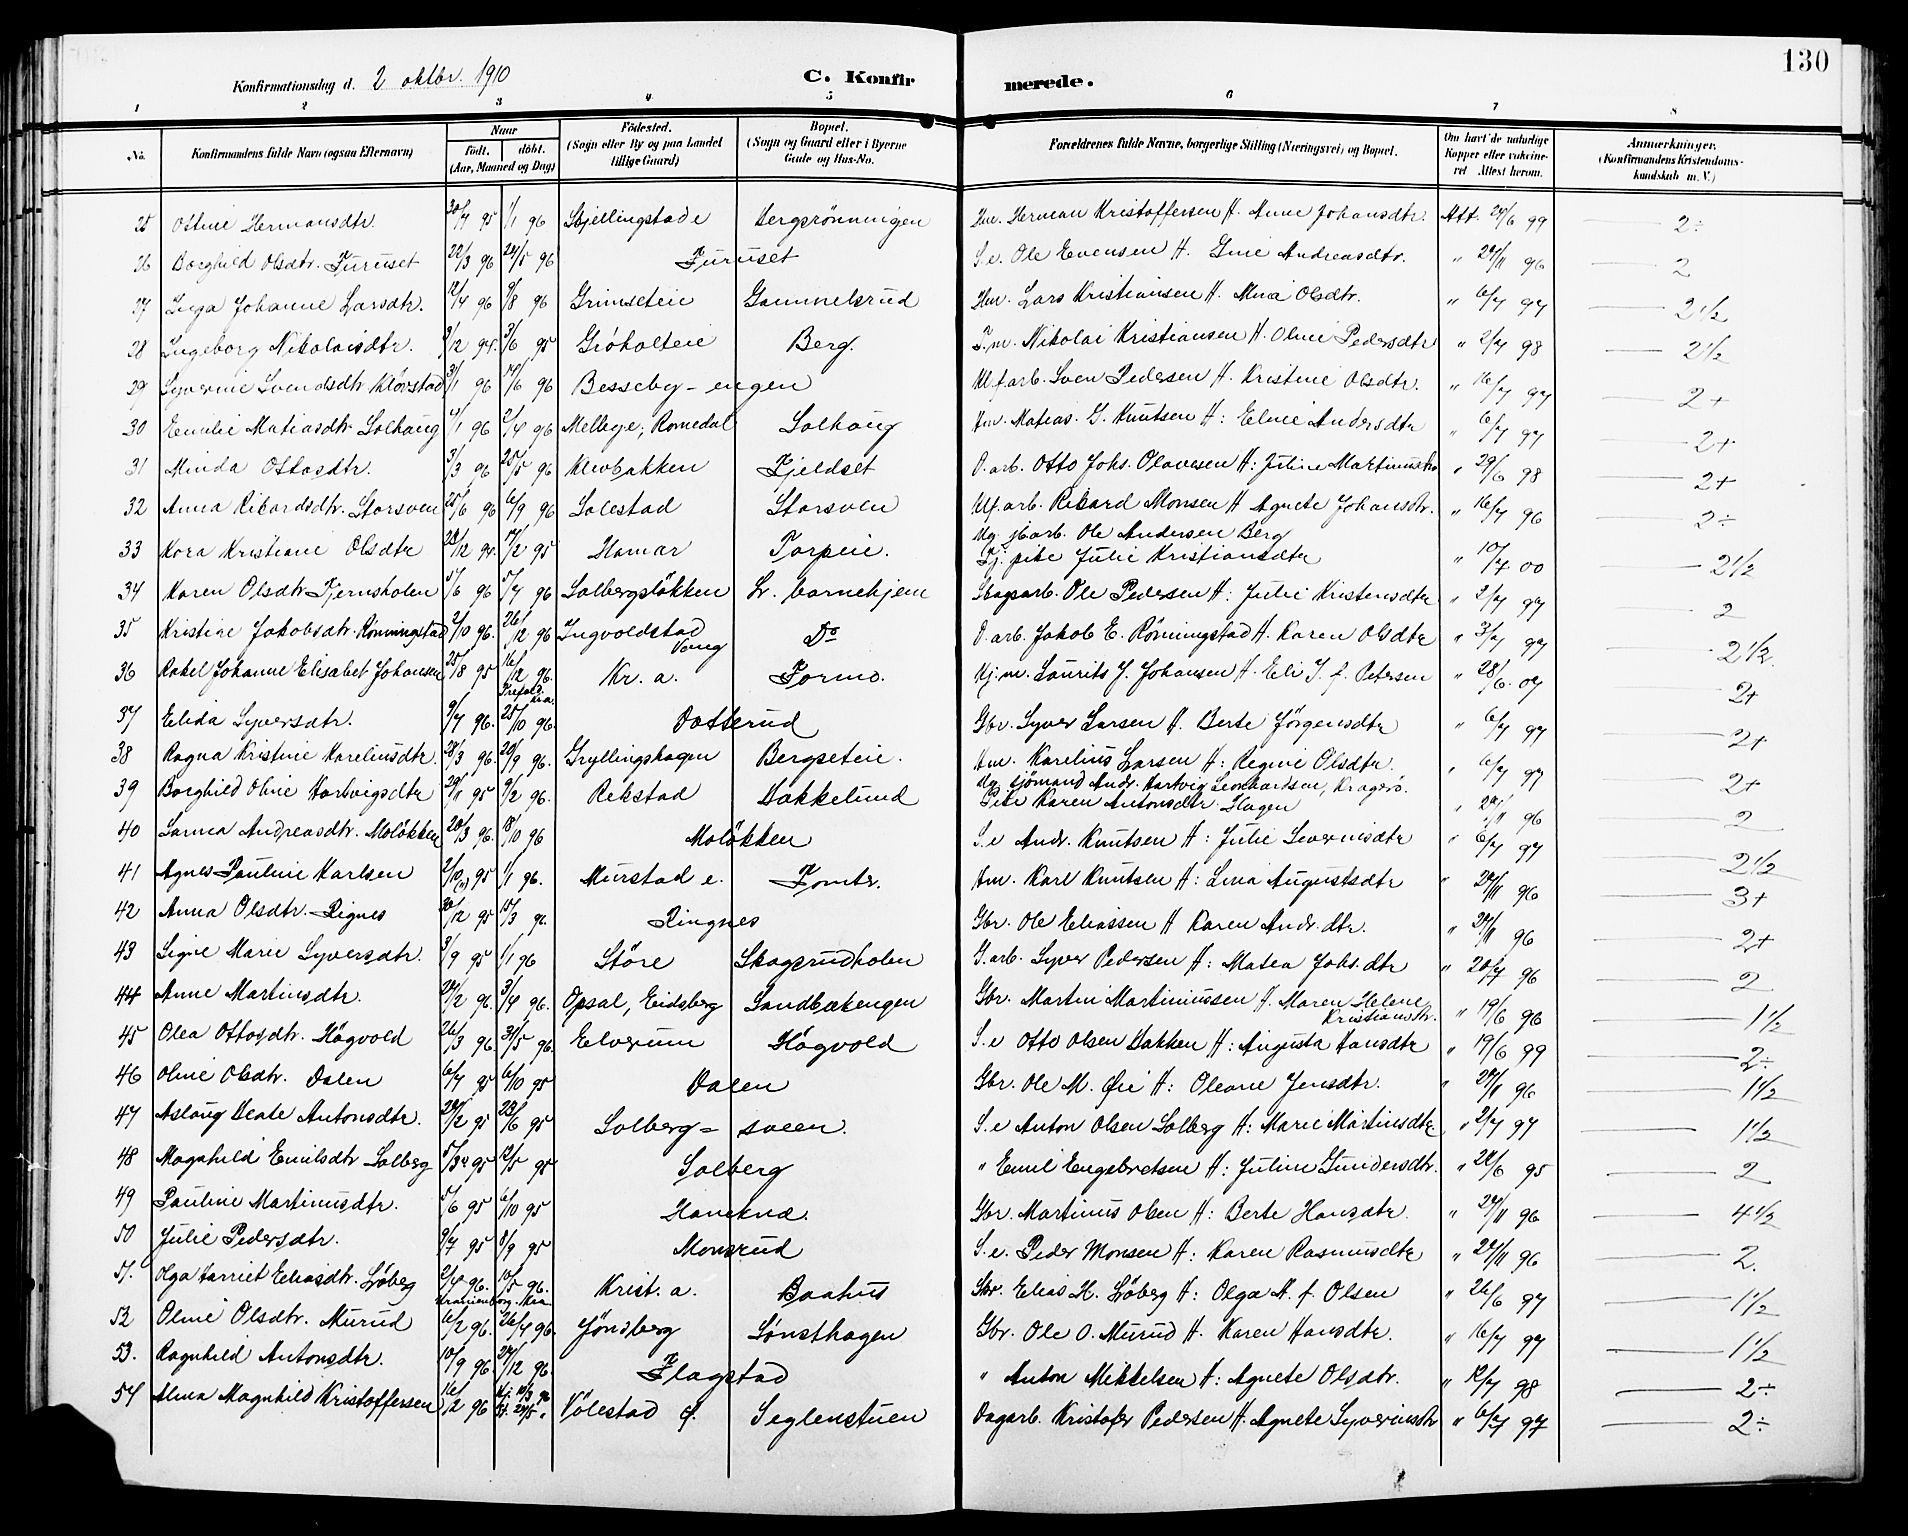 130
Konfirmationsdag d. 2 oktbr. 1910
C. Konfirmerede.
1 2 3 4 5 6 7 8
No. Konfirmandens fulde Navn (ogsaa Efternavn) Naar født. døbt. (Aar, Maaned og Dag) Fødested. (Sogn eller By og paa Landet tillige Gaard) Bopæl. (Sogn og Gaard eller i Byerne Gade og Hus-No. Forældrenes fulde Navne, borgerlige Stilling (Næringsvei) og Bopæl. Om havt de naturlige Kopper eller vakcineret Attest herom. Anmerkninger. (Konfirmandens Kristendomskundskab m. V.)
25 Ostine Hermansdtr. 95 1/1 96 Skjellingstad e Bergsrönningen Hm. Herman Kristoffersen H. Anne Johansdtr. Att. 24/6 99 2÷
26 Borghild Olsdtr. Furuset 22/3 96 24/5 96 Furuset S.e. Ole Evensen H. Gine Andreasdtr. " 24/11 96 2
27 Inga Johanne Larsdtr. 12/4 96 9/8 96 Grimseteie Gammelsrud Hm. Lars Kristiansen H. Mina Olsdtr. " 6/7 97 2 1/2
28 Ingeborg Nikolaisdtr. 9/12 94. 3/6 95 Gröholteie Berg. F.m. Nikolai Kristiansen H. Oline Pedersdtr " 2/7 98 2 1/2
29 Syverine Svendsdtr. Klörstad 31/1 96 14/6 96 Besseby-engen Ulf.arb. Sven Pedersen H. Kristine Olsdtr. " 16/7 97 2+
30 Emilie Matiasdtr. Solhaug 4/1 96 2/4 96 Melbye, Romedal Solhaug Hm. Matias G. Knutsen H: Eline Andersdtr " 6/7 97 2+
31 Minda Ottosdtr. 3/3 96 25/5 96 Klevbakken Fjeldset D.arb. Otto Johs. Olavesen H: Juline Martinusdtr " 29/6 98 2+
32 Anna Rikardsdtr. Storsveen 25/6 96 6/9 96 Solestad Storsveen Ulf.arb. Rikard Monsen H Agnete Johansdtr. " 16/7 96 2÷
33 Kora Kristiane Olsdtr 28/12 94. 17/2 95 Hamar Torpeie. Ug. jb.arb. Ole Andersen Berg
Tj. pike Julie Kristiansdtr " 10/7 00 2 1/2
34 Karen Olsdtr. Tjernsholen 17/6 96 5/7 96 Solbergslökken Lr. barnehjem Skogsarb. Ole Pedersen H: Julie Kristensdtr " 2/7 97 2
35 Kristine Jakobsdtr. Rönningstad 2/10 96. 26/12 96 Ingvoldstad Vang Do D.arb. Jakob E. Rönningstad H. Karen Olsdtr " 3/7 97 2 1/2.
36 Rakel Johanne Elisabet Johansen 25/8 95 16/2 96. Kr. a. Formo. Kj.m. Laurits J. Johansen H. Eli J. f. Petersen " 28/6. 07 2+
Trefold. kra.
37 Elida Syversdtr. 9/7 96. 25/10 96. Dotterud Gbr. Syver Larsen H. Berte Jörgensdtr " 6/7 97 2+
38 Ragna Kristine Kareliusdtr. 28/3 96. 20/9 96. Gryllingshagen Bergseteie. Hm. Karelius Larsen H: Regine Olsdtr. " 6/7 97 2+
39 Borghild Oline Hartvigsdtr 29/11 95 9/2 96. Rekstad Bakkelund Ug. sjömand Andr. Hartvig Leonhardsen, Kragerö.
Pike Karen Antonsdtr. Hagen " 24/11 96 2
40 Lovisa Andreasdtr. Molökken 20/3 96. 18/10 96 Molökken S.e Andr. Knutsen H: Julie Severinsdtr " 6/7 97 2 1/2
41 Agnes Pauline Karlsen 2/10 95 1/1 96. Murstad e. Tomter. Hm. Karl Knutsen H: Lina Augustsdtr " 24/11 96 3+
42 Anna Olsdtr. Rignes 30/12 95 15/3 96. Ringnes Gbr. Ole Eliassen H Karen Andr. dtr. " 24/11 96 2+
43 Signe Marie Syversdtr. 3/9 95 1/1 96 Störe Skogsrudholen G.arb. Syver Pedersen H: Matea Johs. dtr " 20/7 96 2
44 Anne Martinsdtr. 24/2 96. 3/4 96. Opsal, Eidsberg Sandbakengen Gbr. Martin Martiniussen H. Maren Helene Kristiansdtr. " 19/6 96 1 1/2
45 Olea Ottosdtr. Högvold 26/3 96. 31/5 96. Elverum Högvold S.e Otto Olsen Bakken H: Augusta Hansdtr " 19/6 99 2÷
46 Oline Olsdtr. Dalen 6/7 95 6/10 95 Dalen Gbr. Ole M. Øie H: Oleane Jensdtr. " 24/11 96 1 1/2
47 Aslaug Beate Antonsdtr. 24/2 95 23/6 95 Solberg-sveen. S.e Anton Olsen Solberg H: Marie Martinsdtr " 2/7 97 1 1/2
48 Magnhild Emilsdtr Solberg 5/3 95 12/5 95 Solberg " Emil Engebretsen H: Juline Gundersdtr. " 24/6 95 2
49 Pauline Martinusdtr. 5/6 95 6/10 95 Haneknæ. Gbr. Martinus Olsen H: Berte Hansdtr. " 24/11 96 4 1/2
50 Julie Pedersdtr. 9/7 95 8/9 95 Monsrud S.e. Peder Monsen H: Karen Rasmusdtr " 24/11 96 2.
51. Olga Harriet Eliasdtr. Löberg 2/4 96. 10/5 96. Krist. a. Baahus Skr. Elias H. Löberg H: Olga A. f. Olsen " 26/6 97 1 1/2
Uranienborg. Kra.
52 Oline Olsdtr. Murud 6/2 96. 26/4 96. Jönsberg Sönsthagen Gbr. Ole O. Murud H. Karen Hansdtr. " 16/7 97 1 1/2
53. Ragnhild Antonsdtr. 10/9 96. 27/12 96. Flagstad " Anton Mikkelsen H: Agnete Olsdtr. " 12/7 98 2÷
54 Alma Magnhild Kristoffersen 16/2 96 Hj. 15/3 96 St. 24/5 " Völestad ø. Seglenstuen Dagarb. Kristofer Pedersen H. Agnete Syverinsdtr " 6/7 97 2÷